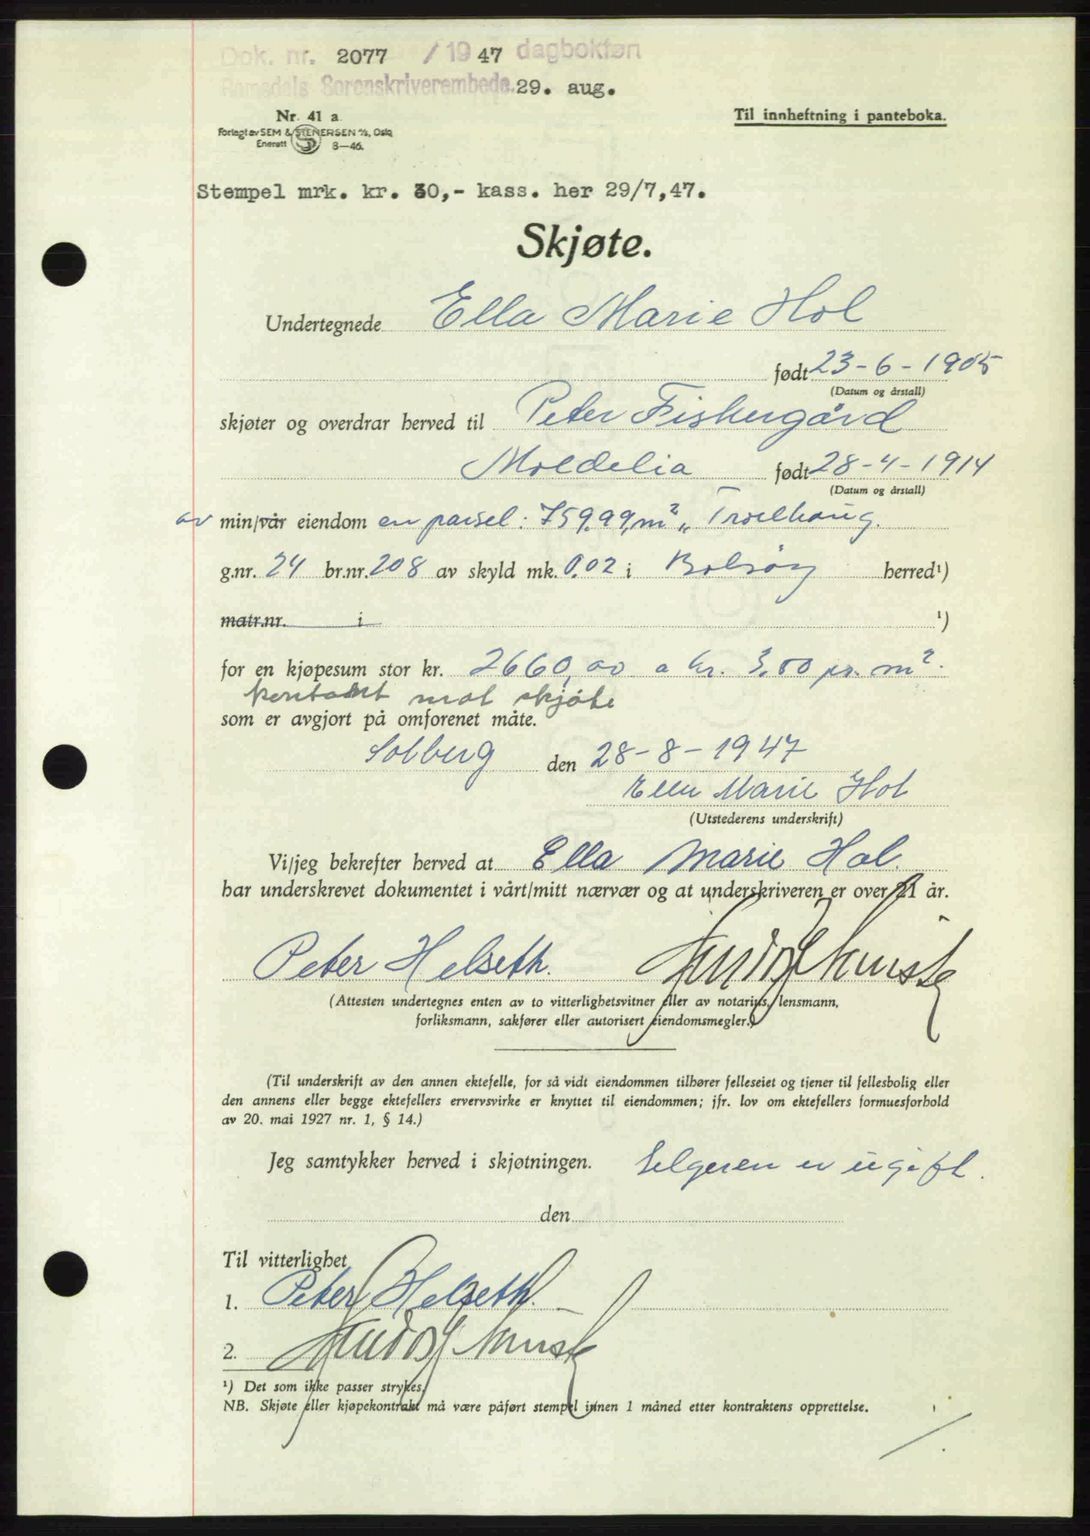 Dok. nr. 2077 /1947 dagbokført
Romsdals Sorenskriverembede. 29. aug.
Nr. 41 a
Til innheftning i panteboka.
Forlagt av SEM & STENERSEN A/S, Oslo
Enerett 8—46.
Stempel mrk. kr. 30,- kass. her 29/7,47.
Skjøte.
Undertegnede Ella Marie Hol
født 23-6-1905
(Datum og årstall)
skjøter og overdrar herved til Peter Fiskergård
Moldelia født 28-4-1914
(Datum og årstall)
av min/vår eiendom en parsel: 759.99 m² „Troelhaug.
g.nr. 24 br.nr. 208 av skyld mk. 0.02 i Bolsøy herred¹)
matr.nr. i ¹)
for en kjøpesum stor kr. 2660,00 a kr. 3.50 pr. m².
kontant mot skjøte
som er avgjort på omforenet måte.
Solberg den 28-8-1947
Ella Marie Hol
(Utstederens underskrift)
Vi/jeg bekrefter herved at Ella Marie Hol.
har underskrevet dokumentet i vårt/mitt nærvær og at underskriveren er over 21 år.
Peter Helseth.
(Attesten undertegnes enten av to vitterlighetsvitner eller av notarius, lensmann,
forliksmann, sakfører eller autorisert eiendomsmegler.)
(Til underskrift av den annen ektefelle, for så vidt eiendommen tilhører felleseiet og tjener til fellesbolig eller
den annens eller begge ektefellers ervervsvirke er knyttet til eiendommen; jfr. lov om ektefellers formuesforhold
av 20. mai 1927 nr. 1, § 14.)
Jeg samtykker herved i skjøtningen. Selgeren er ugift.
den
Til vitterlighet
1. Peter Helseth.
2.
¹) Det som ikke passer strykes.
NB. Skjøte eller kjøpekontrakt må være påført stempel innen 1 måned etter kontraktens opprettelse.